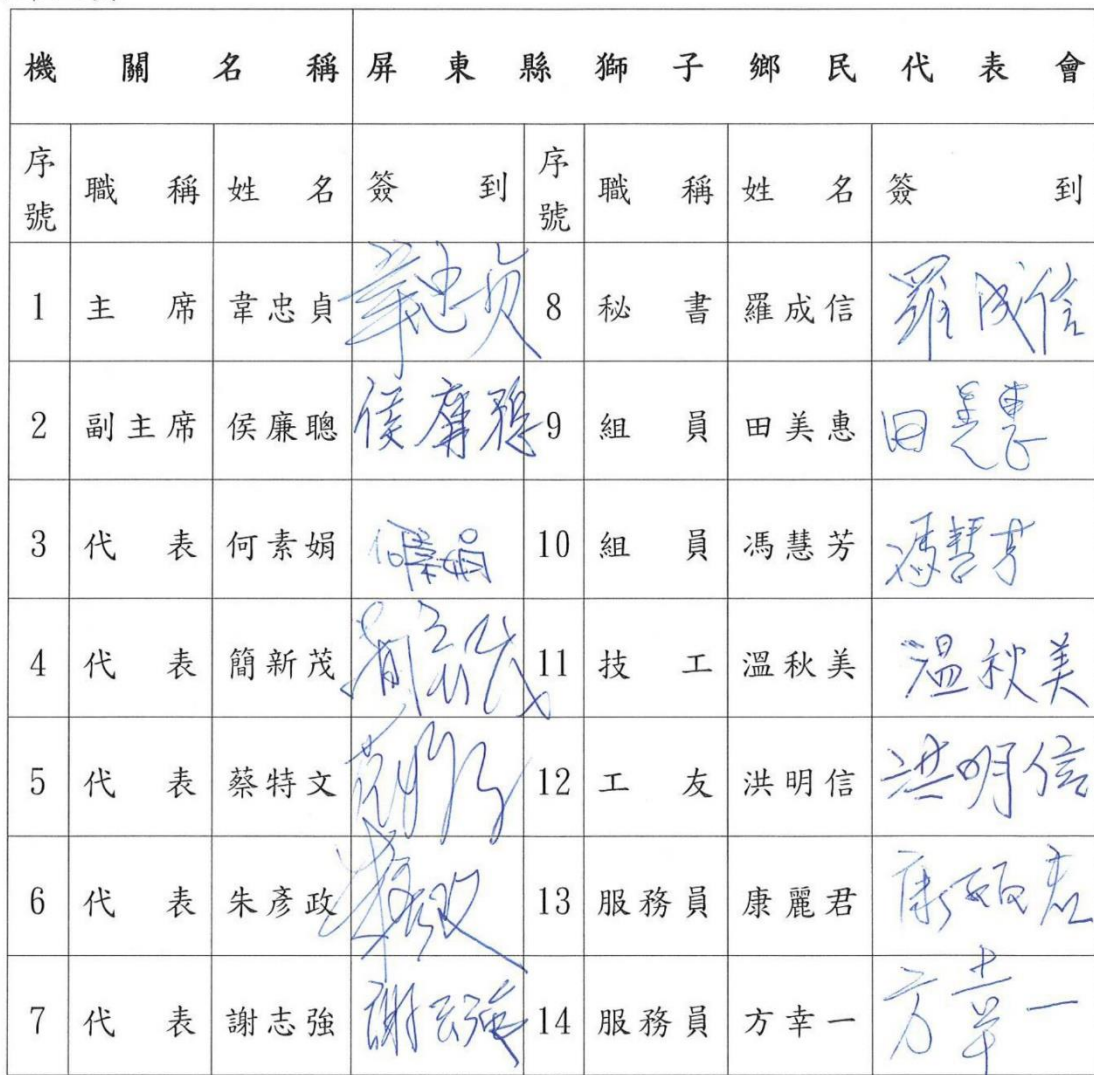 機關名稱 屏東縣獅子鄉民代表會
序號 職稱 姓名 簽到 序號 職稱 姓名 簽到
1 主席 韋忠貞 韋忠貞 8 秘書 羅成信 羅成信
2 副主席 侯廉聰 侯廉聰 9 組員 田美惠 田美惠
3 代表 何素娟 何素娟 10 組員 馮慧芳 馮慧芳
4 代表 簡新茂 簡新茂 11 技工 溫秋美 溫秋美
5 代表 蔡特文 12 工友 洪明信 洪明信
6 代表 朱彥政 朱彥政 13 服務員 康麗君 康麗君
7 代表 謝志強 謝志強 14 服務員 方幸一 方幸一